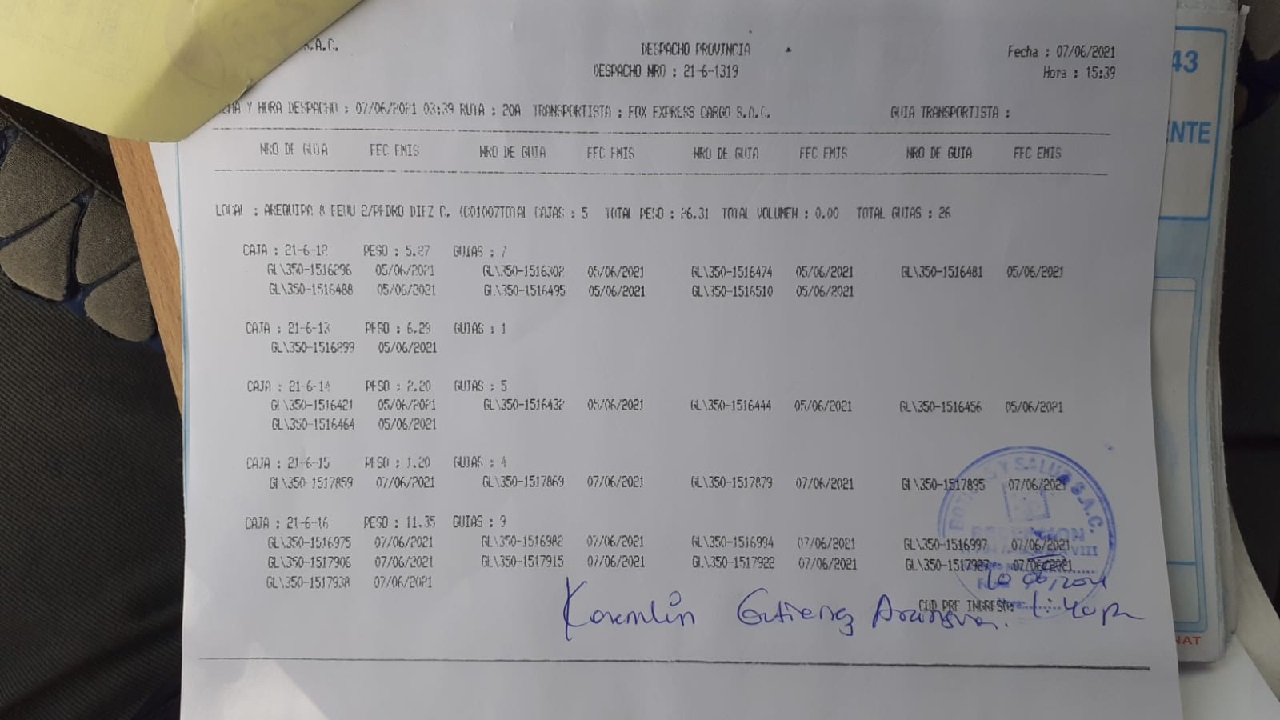 S.A.C.
DESPACHO PROVINCIA
Fecha : 07/06/2021
DESPACHO NRO : 21-6-1319
Hora : 15:39
Y HORA DESPACHO : 07/06/2021 03:39 RUTA : 20A TRANSPORTISTA : FOX EXPRESS CARGO S.A.C. GUIA TRANSPORTISTA :
NRO DE GUIA FEC EMIS NRO DE GUIA FEC EMIS NRO DE GUIA FEC EMIS NRO DE GUIA FEC EMIS
LOCAL : AREQUIPA 8 EEUU 2/PEDRO DIEZ C. (001007TOTAL CAJAS : 5 TOTAL PESO : 26.31 TOTAL VOLUMEN : 0.00 TOTAL GUIAS : 26
CAJA : 21-6-12 PESO : 5.27 GUIAS : 7
GL\350-1516296 05/06/2021 GL\350-1516302 05/06/2021 GL\350-1516474 05/06/2021 GL\350-1516481 05/06/2021
GL\350-1516488 05/06/2021 GL\350-1516495 05/06/2021 GL\350-1516510 05/06/2021
CAJA : 21-6-13 PESO : 6.29 GUIAS : 1
GL\350-1516299 05/06/2021
CAJA : 21-6-14 PESO : 2.20 GUIAS : 5
GL\350-1516421 05/06/2021 GL\350-1516432 05/06/2021 GL\350-1516444 05/06/2021 GL\350-1516456 05/06/2021
GL\350-1516464 05/06/2021
CAJA : 21-6-15 PESO : 1.20 GUIAS : 4
GL\350-1517859 07/06/2021 GL\350-1517869 07/06/2021 GL\350-1517879 07/06/2021 GL\350-1517895 07/06/2021
CAJA : 21-6-16 PESO : 11.35 GUIAS : 9
GL\350-1516975 07/06/2021 GL\350-1516982 07/06/2021 GL\350-1516994 07/06/2021 GL\350-1516997 07/06/2021
GL\350-1517906 07/06/2021 GL\350-1517915 07/06/2021 GL\350-1517922 07/06/2021 07/06/2021
GL\350-1517938 07/06/2021
Y SALUD S.A.C.
VIII
COD PRE INGRESO:
Gutierrez
43
ENTE
NAT